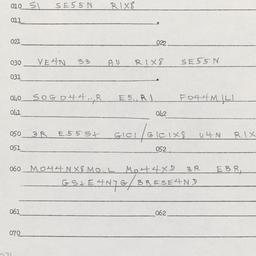 010 SI SESSN RIX8
011
021 022
030 VE4N 33 AU RIX8 SESSN
031
040 SOGD44..R ES..RI FO44MILI
041 042
050 3R ESSS+ GICI/GICIX8 U4N RIX
051 052
060 MO44NX8MO..L MO44XD 3R EBR,
GS+E4N7G/BRESE4ND
061 062
070